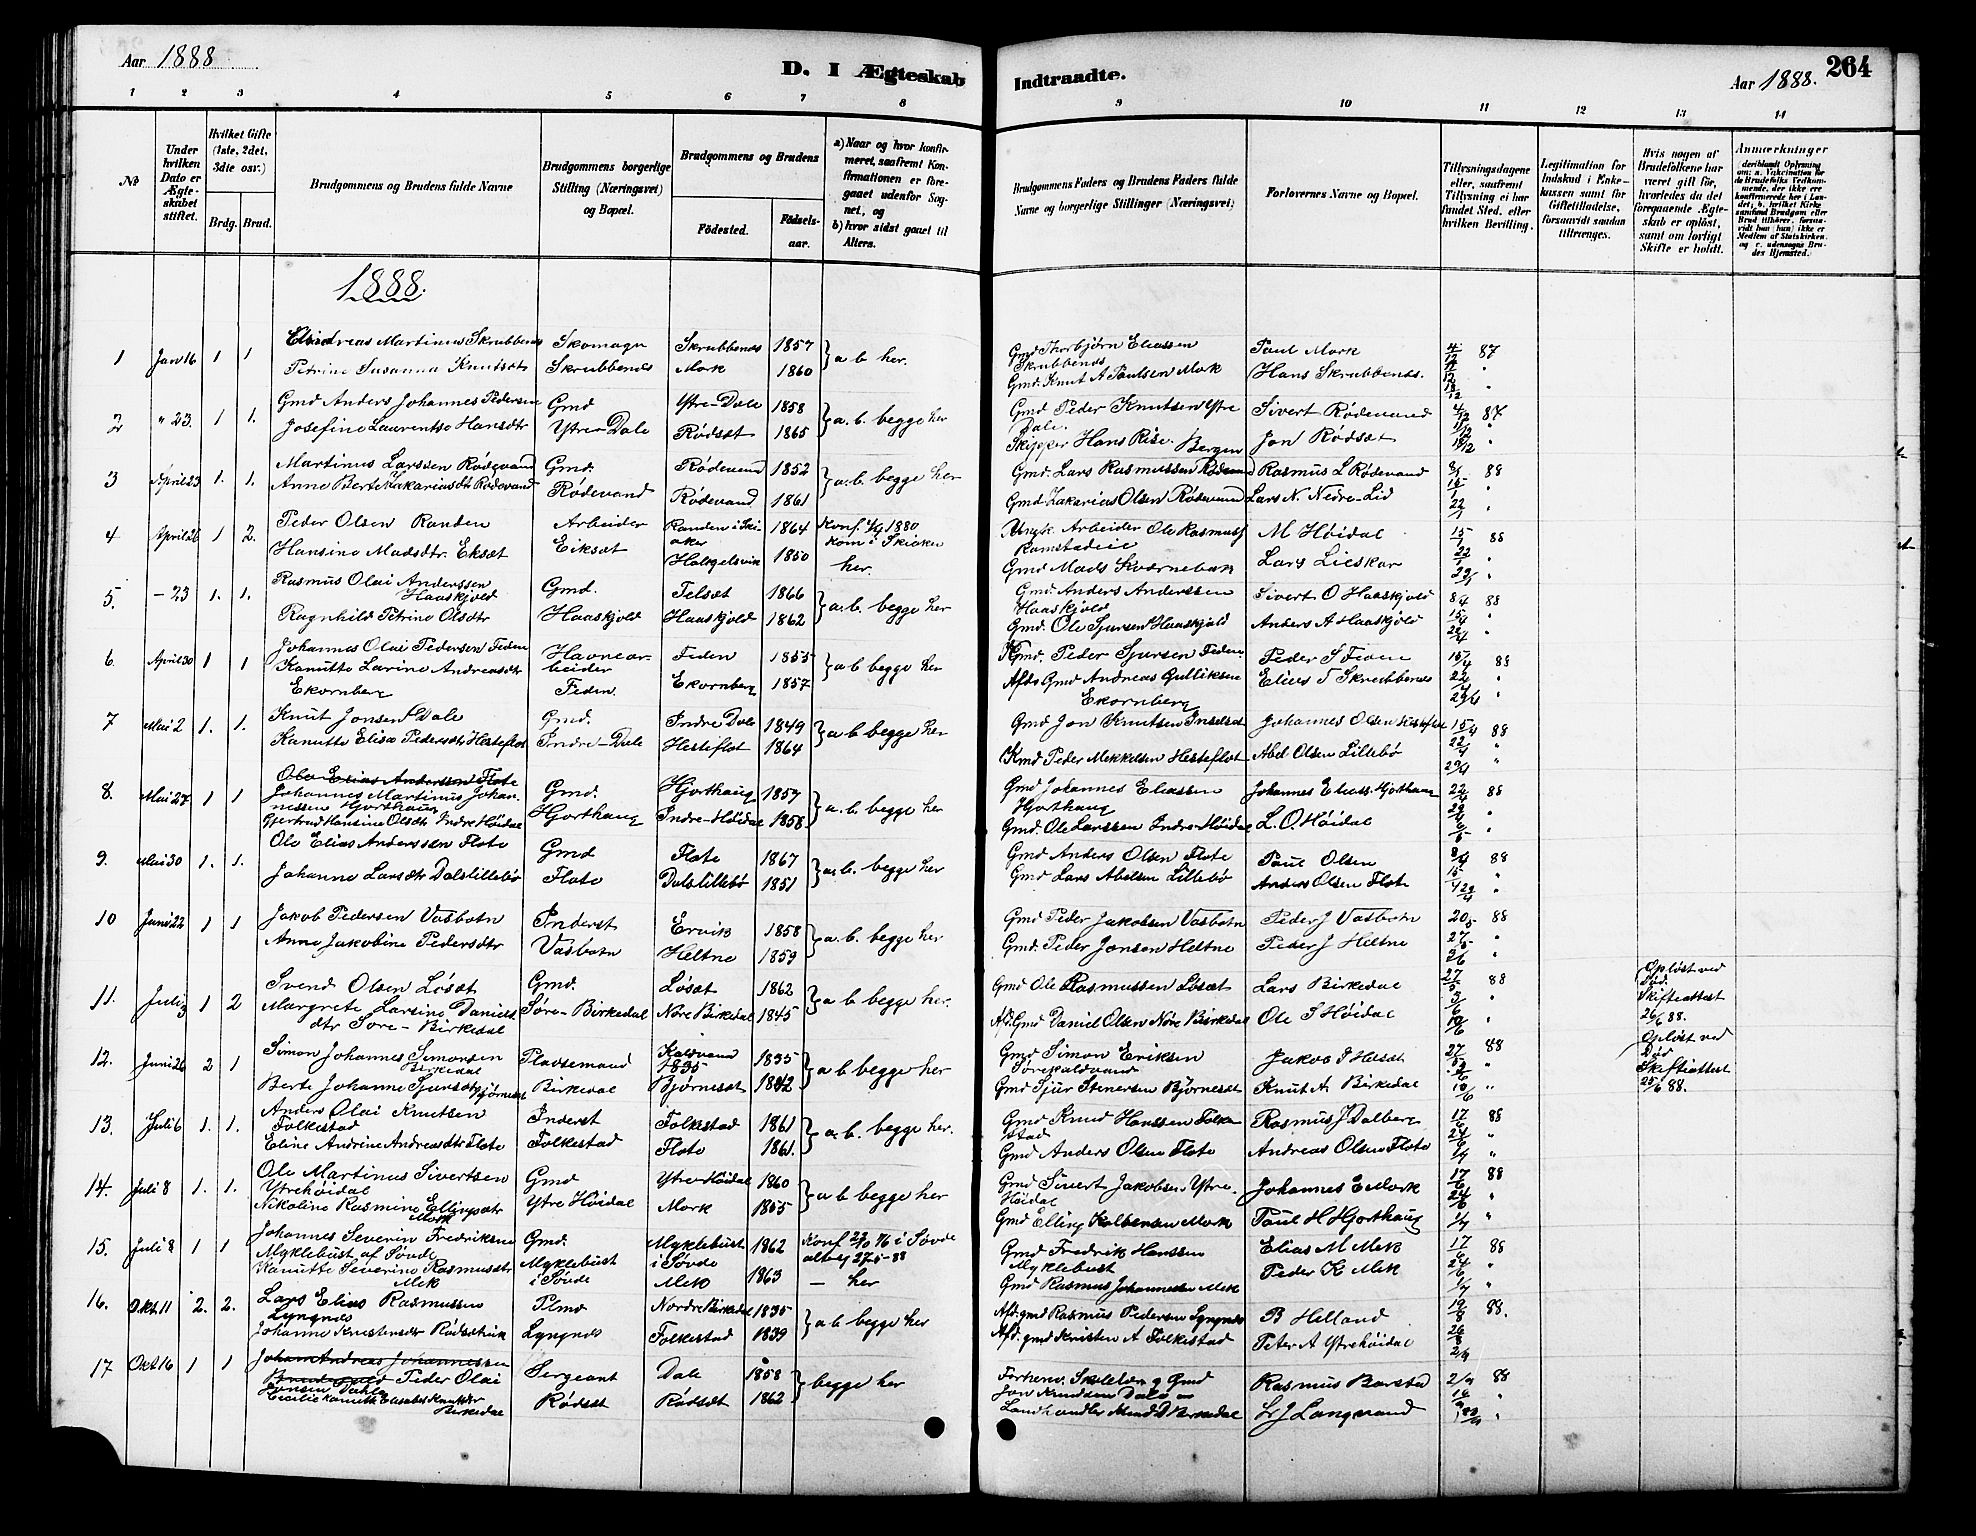 Aar 1888
D. I Ægteskab
Indtraadte.
Aar 1888.
264
1 2 3 4 5 6 7 8 9 10 11 12 13 14
No
Under hvilken Dato er Ægteskabet stiftet.
Hvilket Gifte (1ste, 2det, 3dte osv.)
Brdg. Brud.
Brudgommens og Brudens fulde Navne
Brudgommens borgerlige Stilling (Næringsvei) og Bopæl.
Brudgommens og Brudens
Fødested.
Fødselsaar.
a) Naar og hvor konfirmeret, saafremt Konfirmationen er foregaaet udenfor Sognet, og
b) hvor sidst gaaet til Alters.
Brudgommens Faders og Brudens Faders fulde Navne og borgerlige Stillinger (Næringsvei)
Forlovernes Navne og Bopæl.
Tillysningsdagene eller, saafremt Tillysning ei har fundet Sted, efter hvilken Bevilling.
Legitimation for Indskud i Enkekassen samt for Giftetilladelse, forsaavidt saadan tiltrænges.
Hvis nogen af Brudefolkene har været gift før, hvorledes da det foregaaende Ægteskab er opløst, samt om lovligt Skifte er holdt.
Anmærkninger
1888.
1 Jan 16 1 1 Martinus Skrubbenes Skomager Skrubbenes 1857 a b her. Gmd Thorbjørn Eliassen Skrubbenes Paul Mork 4/12 87
Petrine Susanna Knutsdtr Skrubbenes Mork 1860 Gmd. Knut A Paulsen Mork Hans Skrubbenes. 11/12 "
18/12 "
2 " 23. 1 1. Gmd Anders Johannes Pedersen Gmd Ytre-Dale 1858 a. b. begge her Gmd Peder Knutsen Ytre Dale. Sivert Rødevand 4/12 87
Josefine Laurentse Hansdtr Ytre Dale Rødsæt 1865 Skipper Hans Rise. Bergen Jon Rødsæt 11/12 "
18/12 "
3 April 23 1. 1. Martinus Larssen Rødevand Gmd. Rødevand 1852 a. b. begge her Gmd. Lars Rasmussen Rødevand Rasmus L Rødevand 8/1 88
Anne Berte Zakariasdtr Rødevand Rødevand Rødevand 1861 Gmd. Zakarias Olsen Rødevand Lars N. Nedre-Lid 15/1 "
22/1 "
4 April 26 1 2. Peder Olsen Randen Arbeider Randen i Skiaker 1864 Konf. 1880 kom i Skiaker Arbeider Ole Rasmus Ramstadeie M Høidal 15/1 88
Hansine Madsdtr. Eksæt Eiksæt 1850 her. Gmd Mads Kvernebak Lars Lieskar 22/1 "
5. - 23 1. 1. Rasmus Olai Anderssen Haaskjold Gmd. Felsæt 1866 a. b. begge her Gmd. Anders Anderssen Haaskjold Sivert O Haaskjold 8/4 88
Ragnhild Petrine Olsdtr Haaskjold Haaskjold 1862 Gmd. Ole Sjursen Haaskjold Anders A Haaskjold 15/4 "
22/4 "
6. April 30 1 1 Johannes Olai Pedersen Feden Havnearbeider Feden 1855 a b begge her Gmd. Peder Sjursen Feden Peder S Feden 15/4 88
Kanutte Larine Andreasdtr Ekornberg Feden. Ekornberg 1857 Afd. Gmd Andreas Gulliksen Ekornberg Elias T Skrubbenes 22/4 "
29/4 "
7 Mai 2 1. 1. Knut Jonsen Dale Gmd. Indre Dale 1849 a b begge her Gmd Jon Knutsen Johannes Olsen Hesteflot 15/4 88
Kanutte Elise Pedersdtr Hesteflot Indre-Dale Hesteflot 1864 Gmd Peder Mekkelsen Hesteflot Abel Olsen Lillebø 22/4 "
29/4 "
8. Mai 27 1 1 Ole Elias Anderssen Flote
Johannes Martinus Johannessen Hjorthaug Gmd. Hjorthaug 1857 a. b. begge her Gmd Johannes Eliassen Hjorthaug Johannes Eliass. Hjorthaug 22/4 88
Gjertrud Hansine Olsdtr Indre Høidal Hjorthaug Indre-Høidal 1858. Gmd. Ole Larssen Indre-Høidal L. O. Høidal 29/4 "
9. Mai 30 1. 1. Ole Elias Anderssen Flote Gmd Flote 1867 a. b. begge her Gmd Anders Olsen Flote Paul Olsen 8/4 88
Johanne Larsdtr Dalslillebø Flote Dalslillebø 1851 Gmd Lars Abelsen Lillebø Anders Olsen Flote 15/4 "
22/4 "
10 Juni 22 1 1 Jakob Pedersen Vasbotn Inderst Ervik 1858 a. b. begge her Gmd Peder Jakobsen Vasbotn Peder J Vasbotn 20/5 88
Anne Jakobine Pedersdtr Vasbotn Heltne 1859 Gmd. Peder Jonsen Heltne Peder J Heltne 27/5 "
11. Juli 3 1 2 Svend Olsen Løsæt Gmd. Løsæt 1862 a b begge her. Gmd Ole Rasmussen Løsæt Lars Birkedal 27/5 88 Opløst ved Død. Skifteattest 26/6 88.
Margrete Larsine Danielsdtr Søre-Birkedal Søre-Birkedal Nore Birkedal 1845 Afd. Gmd Daniel Olsen Nore Birkedal Ole S Høidal 3/6 "
10/6 "
12. Juni 26 2 1 Simon Johannes Simonsen Birkedal Pladsemand Kaldvand 1835 a b begge her Gmd Simon Eriksen Sørekaldvand Jakob P Hesæt 27/5 88 Opløst ved Død Skifteattest 25/6 88.
Berte Johanne Sjursdtr Bjørnesæt Birkedal Bjørnesæt 1842 Gmd Sjur Stenersen Bjørnesæt Knut A. Birkedal 3/6 "
10/6 "
13. Juli 6 1. 1. Anders Olai Knutsen Folkestad Inderst Folkestad 1861 a. b. begge her. Gmd Knud Hanssen Folkestad Rasmus J Dalberg 17/6 88
Eline Andrine Andreasdtr Flote Folkestad Flote 1861. Gmd Anders Olsen Flote Andreas Olsen Flote 24/6 "
1/7 "
14. Juli 8 1. 1. Ole Martinus Sivertsen Ytrehøidal Gmd Ytre-Høidal 1860 a b begge her Gmd Sivert Jakobsen Ytre Høidal Johannes E Mork 17/6 88
Nikoline Rasmine Ellingsdtr Mork Ytre Høidal Mork 1855 Gmd Elling Mork Paul H Hjorthaug 24/6 "
1/7 "
15. Juli 8 1 1 Johannes Severin Fredriksen Myklebust af Søvde Gmd. Myklebust i Søvde 1862 Konf 76 i Søvde 27-5-88 Gmd Fredrik Hanssen Myklebust Elias M Mek 17/6 88
Kanutte Severine Rasmusdtr Mek Myklebust i Søvde Mek 1863 - her Gmd Rasmus Johannessen Mek Peder K Mek 24/6 "
1/7 "
16. Okt. 11 2. 2. Lars Elias Rasmussen Lyngnes Plmd Nordre Birkedal 1835 a b begge her Afd. gmd Rasmus Pedersen Lyngnes B Helland 19/8 88.
Johanne Knutsdtr Rødsæthun Lyngnes Folkestad 1839 Afd. gmd Kristen A Folkestad Peter A Ytrehøidal 26/8
2/9
17 Okt 16 1 1 Johan Andreas Johannessen
Peder Olai Jonsen Dahle Sergeant Dale 1858 begge her Forhenv. Skolelær. og Gmd Jon Knudsen Dale Rasmus Barstad 2/9 88
Cecilie Kanutte Elisabet Knutsdtr Birkedal Rødset Rødsæt 1862 Landhandler Birkedal L J Langvand